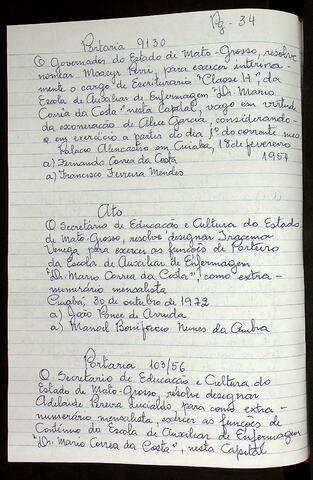 Pg - 34
Portaria 9130
O Governador do Estado de Mato-Grosso, resolve
nomear Moacyr Perri, para exercer interina-
mente o cargo de Escriturário "Classe H", da
Escola de Auxiliar de Enfermagem "Dr. Mario
Corrêa da Costa" nesta Capital, vago em virtude
da exoneração de Alice Garcia, considerando-
o em exercício a partir do dia 1º do corrente mês
Palácio Alencastro em Cuiabá, 18 de fevereiro
1957
a) Fernando Corrêa da Costa
a) Francisco Ferreira Mendes
Ato
O Secretário de Educação e Cultura do Estado
de Mato-Grosso, resolve designar Iracema
para exercer as funções de Porteiro
da Escola de Auxiliar de Enfermagem
"Dr. Mario Correa da Costa", como extra-
numerário mensalista
Cuiabá, 30 de outubro de 1972
a) João Ponce de Arruda
a) Manoel Bonifacio Nunes da Cunha
Portaria 103/56
O Secretário de Educação e Cultura do
Estado de Mato-Grosso, resolve designar
Adelaide Pereira para como extra-
numerário mensalista, exercer as funções de
Contínuo da Escola de Auxiliar de Enfermagem
"Dr. Mario Correa da Costa", nesta Capital